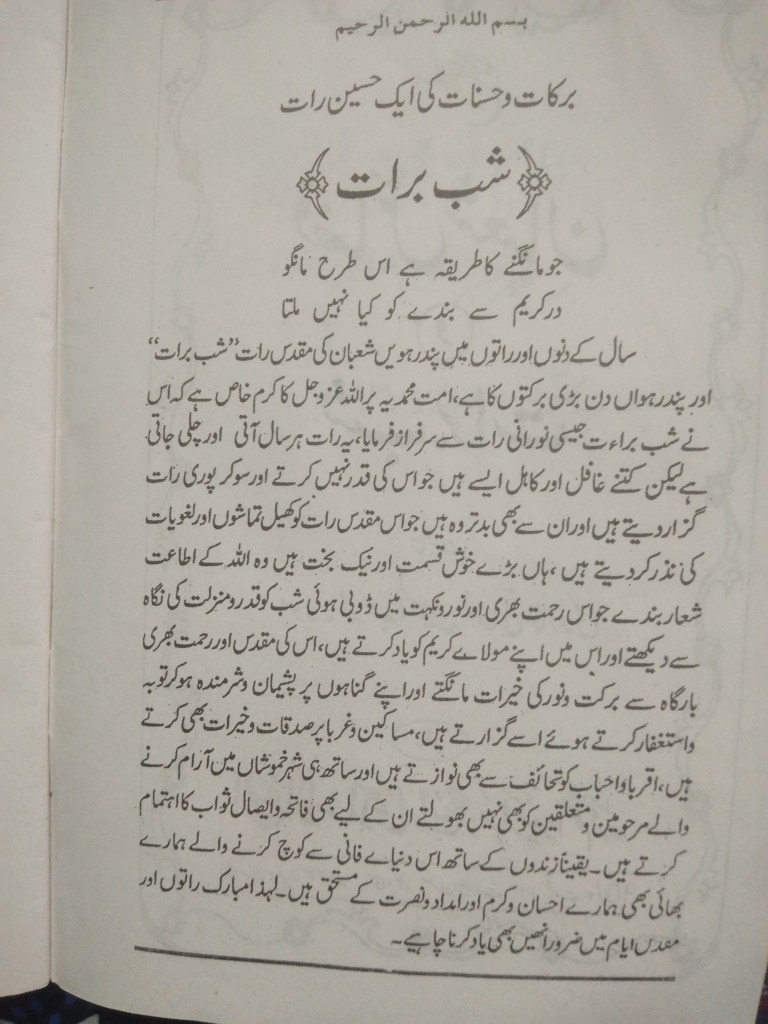 بسم اللہ الرحمن الرحیم
برکات وحسنات کی ایک حسین رات
شب برات
جو مانگنے کا طریقہ ہے اس طرح مانگو
درکریم سے بندے کو کیا نہیں ملتا
سال کے دنوں اور راتوں میں پندرہویں شعبان کی مقدس رات ”شب برات“
اور پندرہواں دن بڑی برکتوں کا ہے، امت محمدیہ پر اللہ عزوجل کا کرم خاص ہے کہ اس
نے شب براءت جیسی نورانی رات سے سرفراز فرمایا، یہ رات ہر سال آتی اور چلی جاتی
ہے لیکن کتنے غافل اور کاہل ایسے ہیں جو اس کی قدر نہیں کرتے اور سوکر پوری رات
گزار دیتے ہیں اور ان سے بھی بدتر وہ ہیں جو اس مقدس رات کو کھیل تماشوں اور لغویات
کی نذر کر دیتے ہیں، ہاں بڑے خوش قسمت اور نیک بخت ہیں وہ اللہ کے اطاعت
شعار بندے جو اس رحمت بھری اور نور ونکہت میں ڈوبی ہوئی شب کو قدر ومنزلت کی نگاہ
سے دیکھتے اور اس میں اپنے مولاے کریم کو یاد کرتے ہیں، اس کی مقدس اور رحمت بھری
بارگاہ سے برکت ونور کی خیرات مانگتے اور اپنے گناہوں پر پشیمان وشرمندہ ہوکر توبہ
واستغفار کرتے ہوئے اسے گزارتے ہیں، مساکین وغربا پر صدقات وخیرات بھی کرتے
ہیں، اقربا واحباب کو تحائف سے بھی نوازتے ہیں اور ساتھ ہی شہر خموشاں میں آرام کرنے
والے مرحومین ومتعلقین کو بھی نہیں بھولتے ان کے لیے بھی فاتحہ وایصال ثواب کا اہتمام
کرتے ہیں۔ یقیناً زندوں کے ساتھ اس دنیاے فانی سے کوچ کرنے والے ہمارے
بھائی بھی ہمارے احسان وکرم اور امداد ونصرت کے مستحق ہیں۔ لہذا مبارک راتوں اور
مقدس ایام میں ضرور انھیں بھی یاد کرنا چاہیے۔